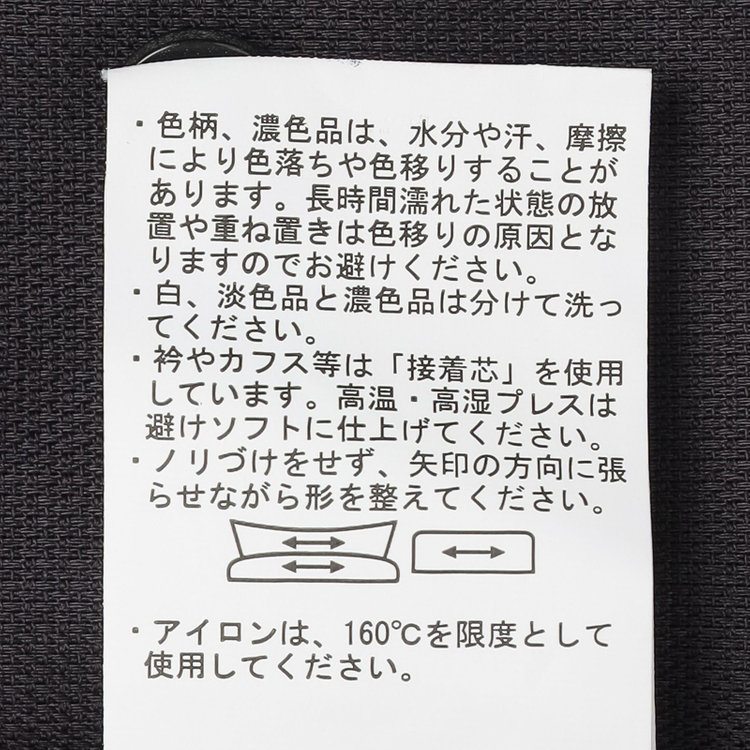 ・色柄、濃色品は、水分や汗、摩擦
により色落ちや色移りすることが
あります。長時間濡れた状態の放
置や重ね置きは色移りの原因とな
りますのでお避けください。
・白、淡色品と濃色品は分けて洗っ
てください。
・衿やカフス等は「接着芯」を使用
しています。高温・高湿プレスは
避けソフトに仕上げてください。
・ノリづけをせず、矢印の方向に張
らせながら形を整えてください。
・アイロンは、160℃を限度として
使用してください。